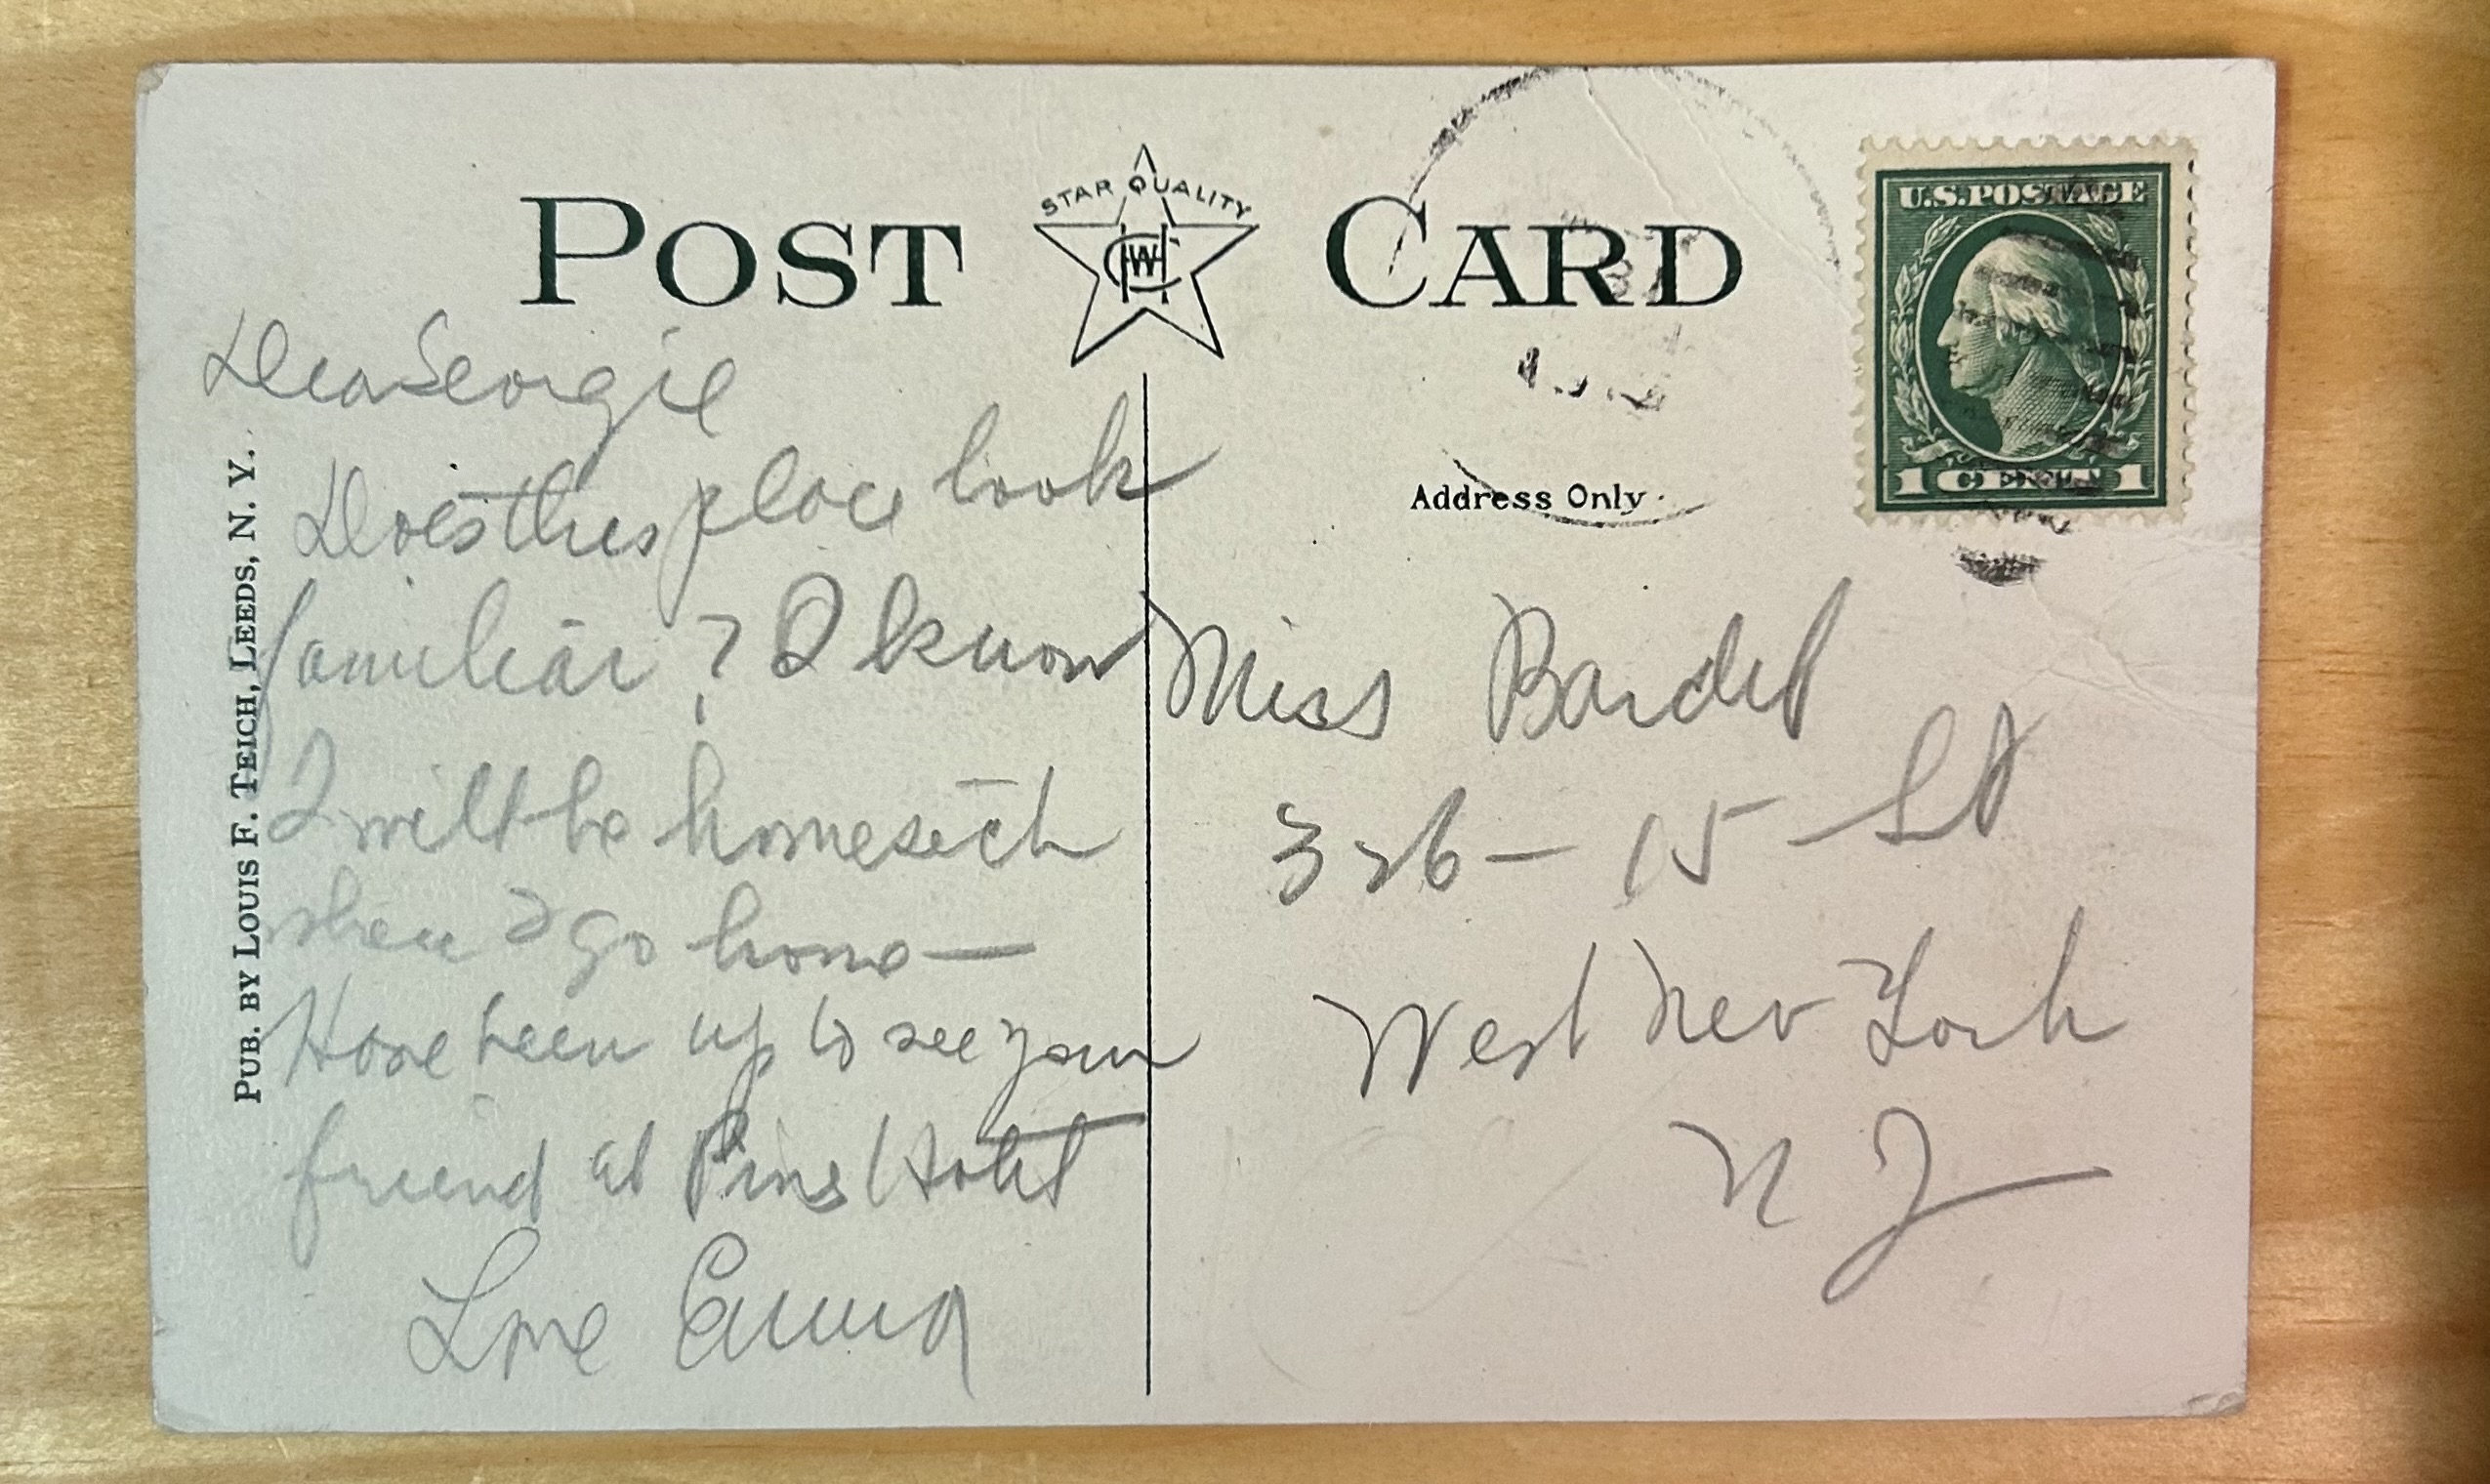 POST CARD
STAR QUALITY
CWH
U.S. POSTAGE
1 CENT 1
Address Only
PUB. BY LOUIS F. TEICH, LEEDS, N. Y.
Dear Georgie
Does this place look
familiar? I know
I will be homesick
when I go home —
Have been up to see your
friend at Pins Hotel
Love Emma
Miss Bardet
326 - 15 - St
West New York
N J